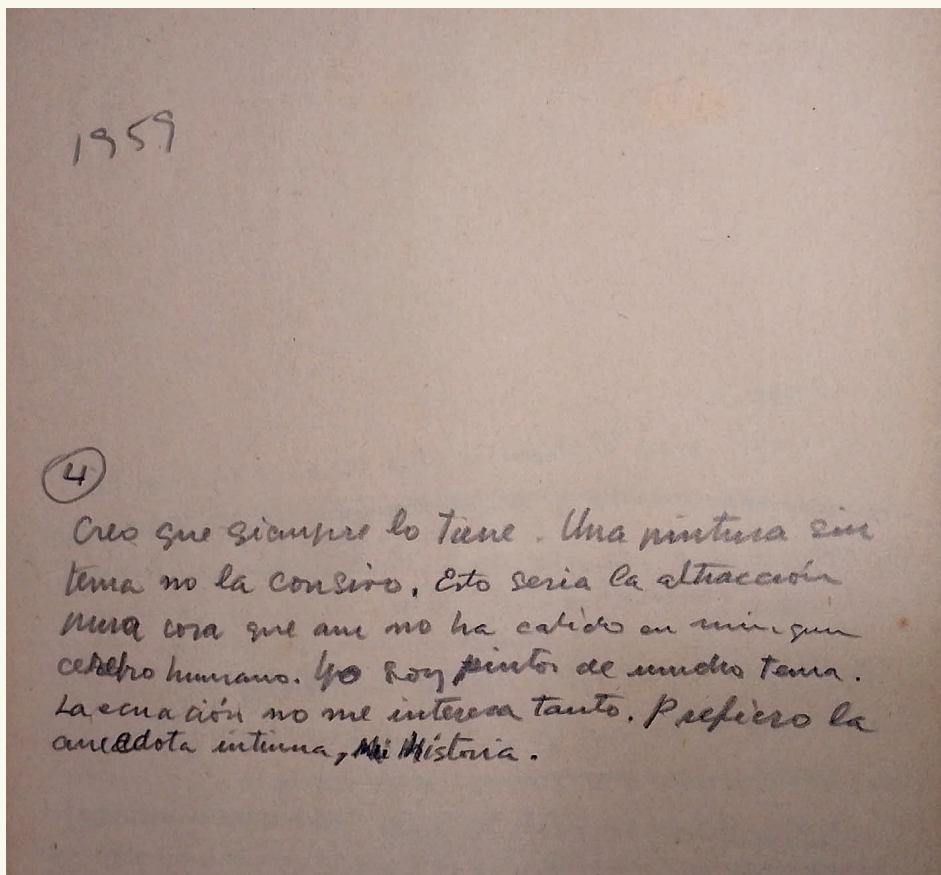 1959
4
Creo que siempre lo tiene. Una pintura sin
tema no la consivo. Esto seria la altracción
pura cosa que aun no ha cabido en ningun
cerebro humano. Yo soy pintor de mucho tema.
La ecuación no me interesa tanto. Prefiero la
anecdota intima, Mi História.